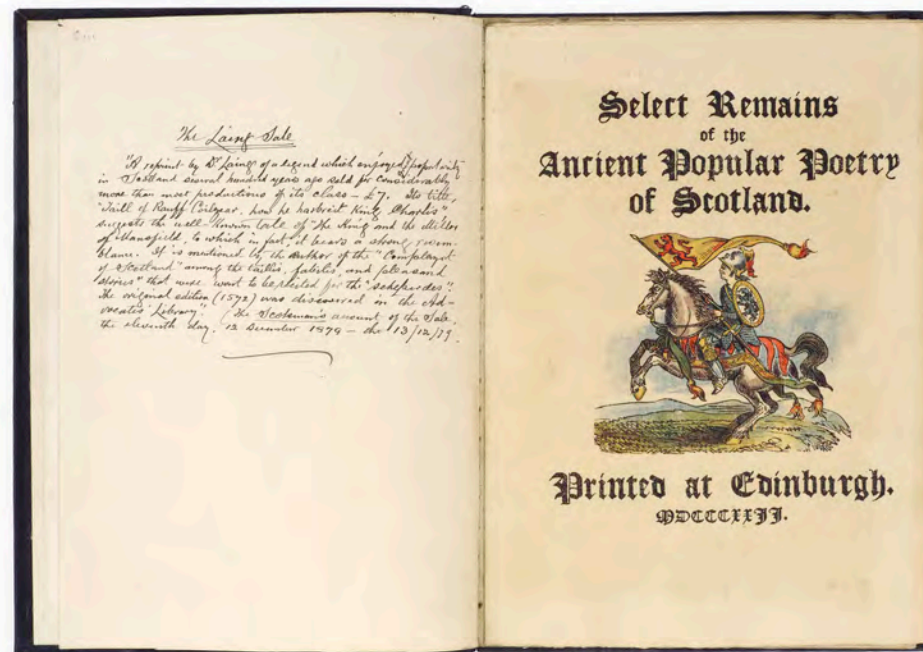 The Laing Sale
"A reprint by Dr Laing of a legend which enjoyed popularity
in Scotland several hundred years ago sold for considerably
more than most productions of its class – £7. Its title,
"Taill of Rauff Coilyear, how he harbreit King Charlis"
suggests the well-known tale of "the King and the Miller
of Mansfield, to which in fact, it bears a strong resem-
blance. It is mentioned by the author of the "Complaynt
of Scotland" among the taillis, fabelis, and pleasand
stories" that were wont to be for the "scheperdes".
The original edition (1572) was discovered in the Ad-
vocates' Library." (The Scotsman's account of the Sale,
the eleventh day. 12 December 1879 – 13/12/79.
Select Remains
of the
Ancient Popular Poetry
of Scotland.
Printed at Edinburgh.
MDCCCXXII.